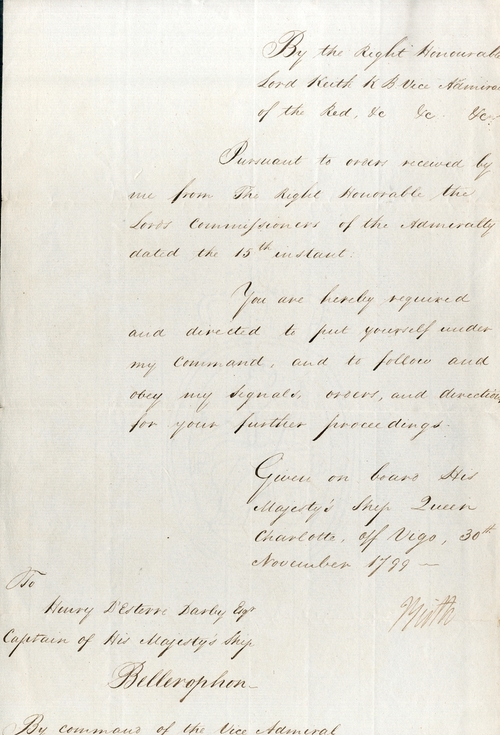 By the Right Honourabl
Lord Keith K B Vice Admira
of the Red, &c &c. &c.
Pursuant to orders received by
me from The Right Honorable the
Lords Commissioners of the Admiralty
dated the 15th instant:
You are hereby required
and directed to put yourself under
my Command, and to follow and
obey my Signals, orders, and direction
for your further proceedings.
Given on board His
Majesty's Ship Queen
Charlotte, off Vigo, 30th
November 1799
Keith
To
Henry D'Esterre Darby Esqr
Captain of His Majesty's Ship
Bellerophon
By command of the Vice Admiral